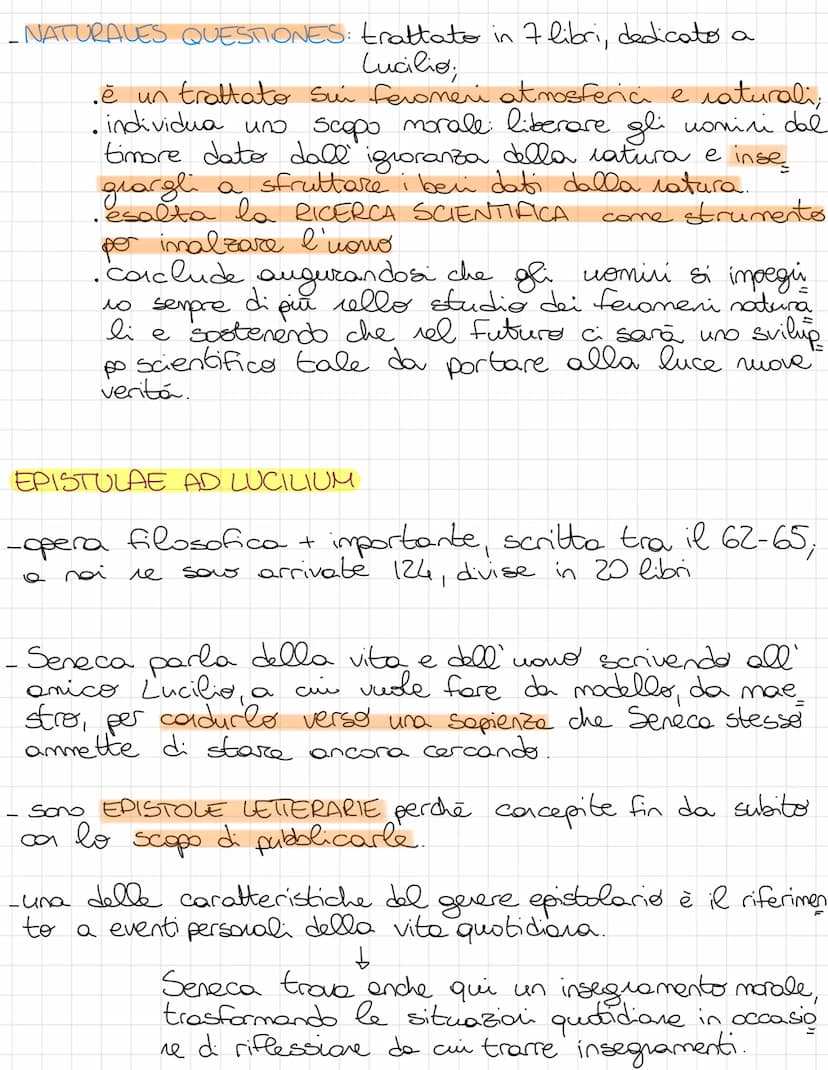 - NATURALES QUESTIONES: trattato in 7 libri, dedicato a
Lucilio;
. è un trattato sui fenomeni atmosferici e naturali;
. individua uno scopo morale: liberare gli uomini dal
timore dato dall'ignoranza della natura e inse=
gnargli a sfruttare i beni dati dalla natura.
. esalta la RICERCA SCIENTIFICA come strumento
per innalzare l'uomo
. conclude augurandosi che gli uomini si impegni
no sempre di più nello studio dei fenomeni natura=
li e sostenendo che nel futuro ci sarà uno svilup=
po scientifico tale da portare alla luce nuove
verità.
EPISTULAE AD LUCILIUM
- opera filosofica + importante, scritta tra il 62-65;
a noi ne sono arrivate 124, divise in 20 libri
- Seneca parla della vita e dell'uomo scrivendo all'
amico Lucilio, a cui vuole fare da modello, da mae=
stro, per condurlo verso una sapienza che Seneca stesso
ammette di stare ancora cercando.
- sono EPISTOLE LETTERARIE perché concepite fin da subito
con lo scopo di pubblicarle.
- una delle caratteristiche del genere epistolario è il riferimen=
to a eventi personali della vita quotidiana.
↓
Seneca trova anche qui un insegnamento morale,
trasformando le situazioni quotidiane in occasio=
ne di riflessione da cui trarre insegnamenti.